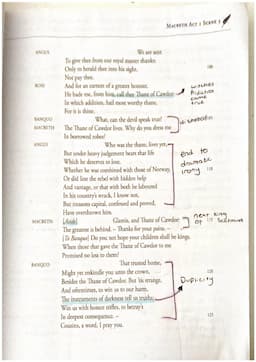 MACBETH ACT 1 SCENE 3
ANGUS We are sent
To give thee from our royal master thanks;
Only to herald thee into his sight,
Not pay thee.
ROSS And for an earnest of a greater honour,
He bade me, from him, call thee Thane of Cawdor:
In which addition, hail most worthy thane,
For it is thine.
witches
prediction
came
true
BANQUO What, can the devil speak true?
MACBETH The Thane of Cawdor lives. Why do you dress me
In borrowed robes?
ANGUS Who was the thane, lives yet,
But under heavy judgement bears that life
Which he deserves to lose.
Whether he was combined with those of Norway,
Or did line the rebel with hidden help
And vantage, or that with both he laboured
In his country's wrack, I know not,
But treasons capital, confessed and proved,
Have overthrown him.
end to
dramatic
irony
110
MACBETH [Aside] Glamis, and Thane of Cawdor:
The greatest is behind. – Thanks for your pains. –
[To Banquo] Do you not hope your children shall be kings,
When those that gave the Thane of Cawdor to me
Promised no less to them?
next king
of
BANQUO That trusted home,
Might yet enkindle you unto the crown,
120
Besides the Thane of Cawdor. But 'tis strange,
And oftentimes, to win us to our harm,
The instruments of darkness tell us truths;
Win us with honest trifles, to betray's
In deepest consequence. –
Cousins, a word, I pray you.
Duplicity
125